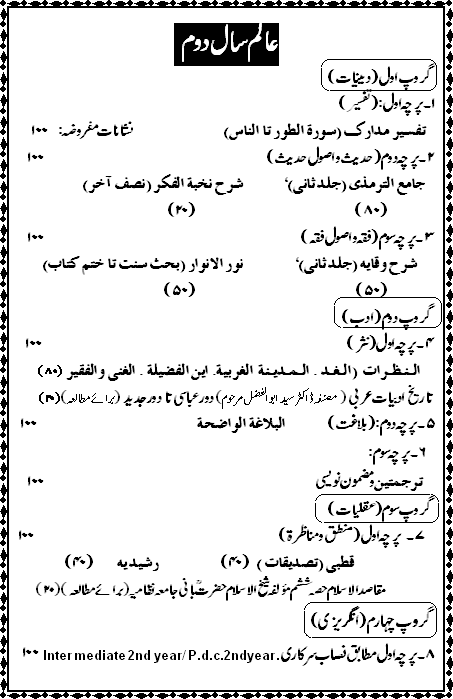 عالم سال دوم
گروپ اول (دینیات)
۱۔ پرچہ اول: (تفسیر)
تفسیر مدارک (سورۃ الطور تا الناس) نشانات مفروضہ: ۱۰۰
۲۔ پرچہ دوم (حدیث و اصول حدیث) ۱۰۰
جامع الترمذی (جلد ثانی)، شرح نخبة الفکر (نصف آخر)
(۸۰) (۲۰)
۳۔ پرچہ سوم (فقہ و اصول فقہ) ۱۰۰
شرح وقایه (جلد ثانی)، نور الانوار (بحث سنت تا ختم کتاب)
(۵۰) (۵۰)
گروپ دوم (ادب)
۴۔ پرچہ اول (نثر) ۱۰۰
النظرات (الغد . المدینة الغربیة. این الفضیلة . الغنی والفقیر (۸۰)
تاریخ ادبیات عربی (مصنفہ ڈاکٹر سید ابوالفضل مرحوم) دور عباسی تا دور جدید (برائے مطالعہ)(۲۰)
۵۔ پرچہ دوم: (بلاغت) البلاغة الواضحة ۱۰۰
۶۔ پرچہ سوم:
ترجمتین و مضمون نویسی ۱۰۰
گروپ سوم (عقلیات)
۷۔ پرچہ اول (منطق و مناظرۃ) ۱۰۰
قطبی (تصدیقات) (۴۰) رشیدیه (۴۰)
مقاصد الاسلام حصہ ششم مؤلفہ شیخ الاسلام حضرت بانی جامعہ نظامیہ (برائے مطالعہ)(۲۰)
گروپ چہارم (انگریزی)
۸۔ پرچہ اول مطابق نصاب سرکاری. Intermediate 2nd year/ P.d.c.2ndyear ۱۰۰